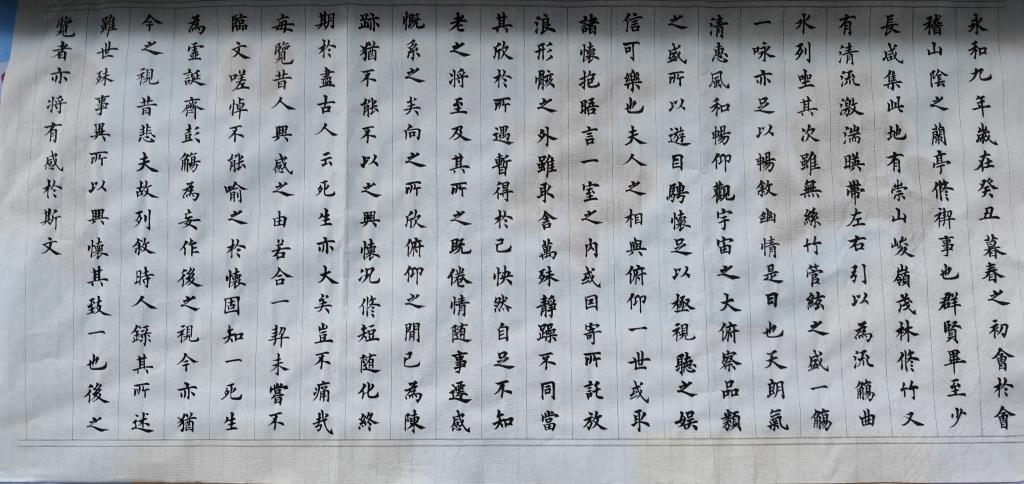 永和九年歲在癸丑暮春之初會於會
稽山陰之蘭亭修禊事也群賢畢至少
長咸集此地有崇山峻嶺茂林修竹又
有清流激湍暎帶左右引以為流觴曲
水列坐其次雖無絲竹管絃之盛一觴
一咏亦足以暢敘幽情是日也天朗氣
清惠風和暢仰觀宇宙之大俯察品類
之盛所以遊目騁懷足以極視聽之娛
信可樂也夫人之相與俯仰一世或取
諸懷抱晤言一室之內或因寄所託放
浪形骸之外雖取舍萬殊靜躁不同當
其欣於所遇暫得於己快然自足不知
老之將至及其所之既倦情随事遷感
慨系之矣向之所欣俯仰之間已為陳
跡猶不能不以之興懷況修短随化終
期於盡古人云死生亦大矣豈不痛哉
每覽昔人興感之由若合一契未嘗不
臨文嗟悼不能喻之於懷固知一死生
為虛誕齊彭觴為妄作後之視今亦猶
今之視昔悲夫故列敘時人錄其所述
雖世殊事異所以興懷其致一也後之
覽者亦將有感於斯文